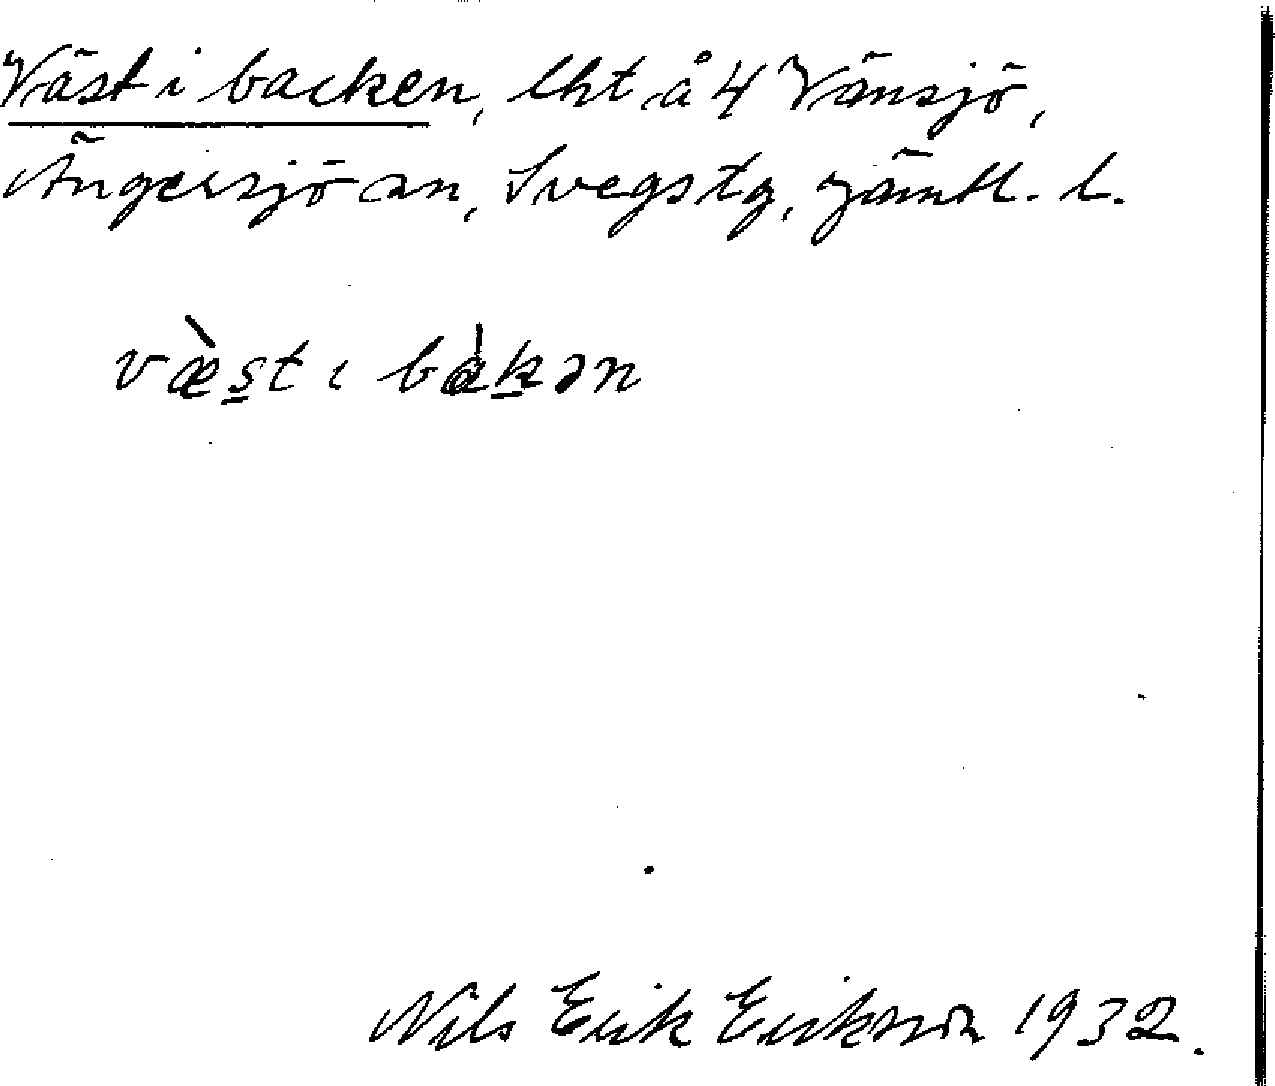 Väst i backen, lht å 4 Vänsjö,
Ängersjö an, Svegs tg, Jämtl. l.
væ̀s̲t ı bàk̲ən
Nils Erik Erikson 1932.